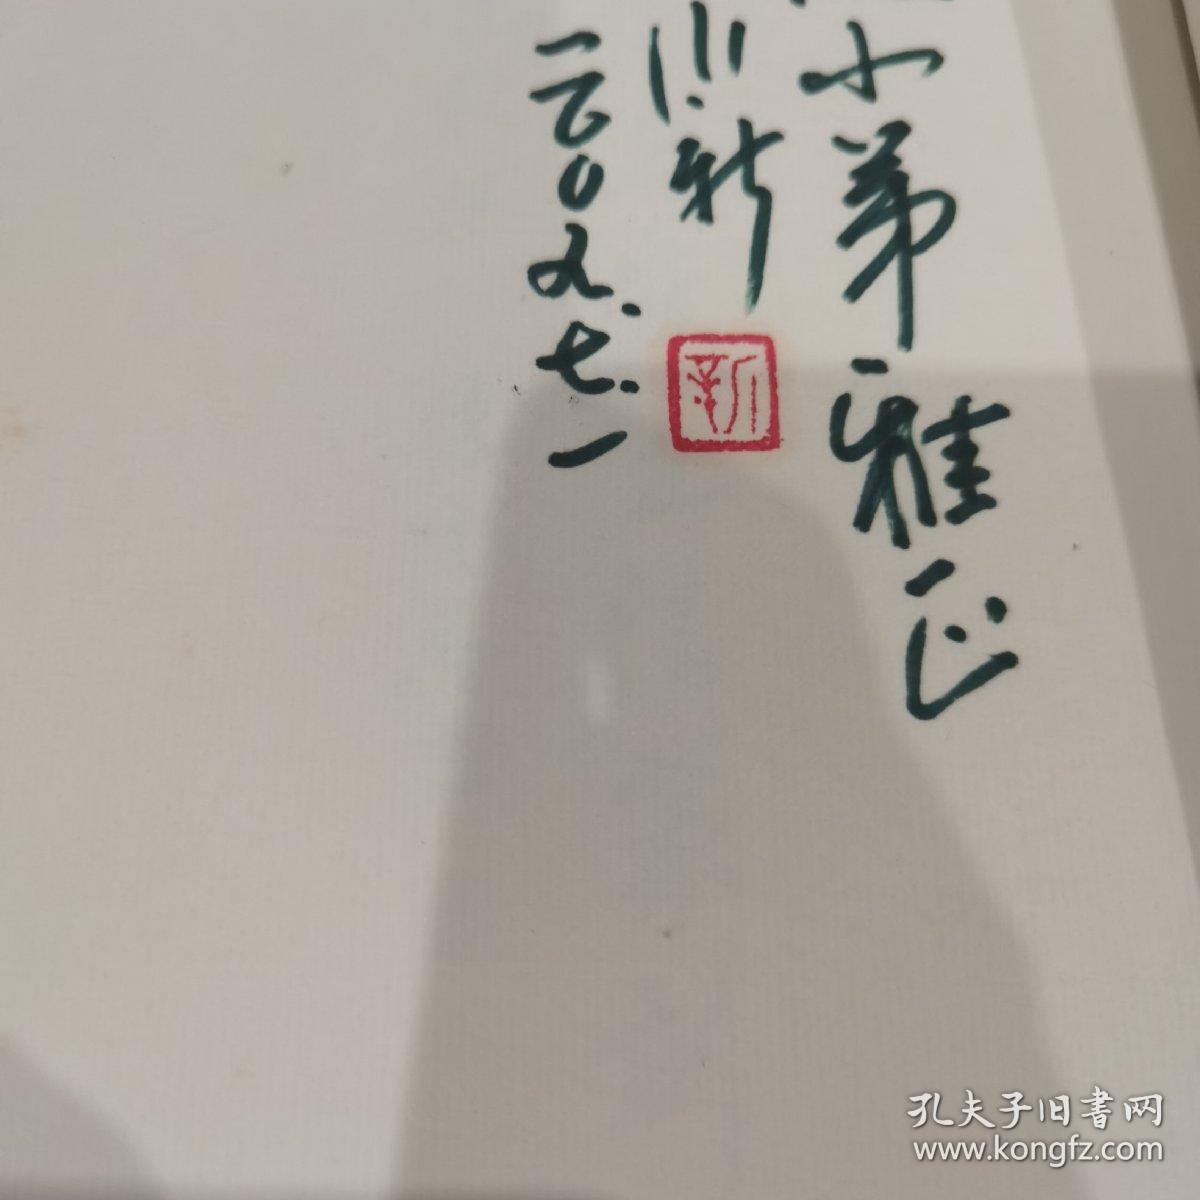 小弟雅正
川新
二〇〇九.七.一
新
孔夫子旧書网
www.kongfz.com